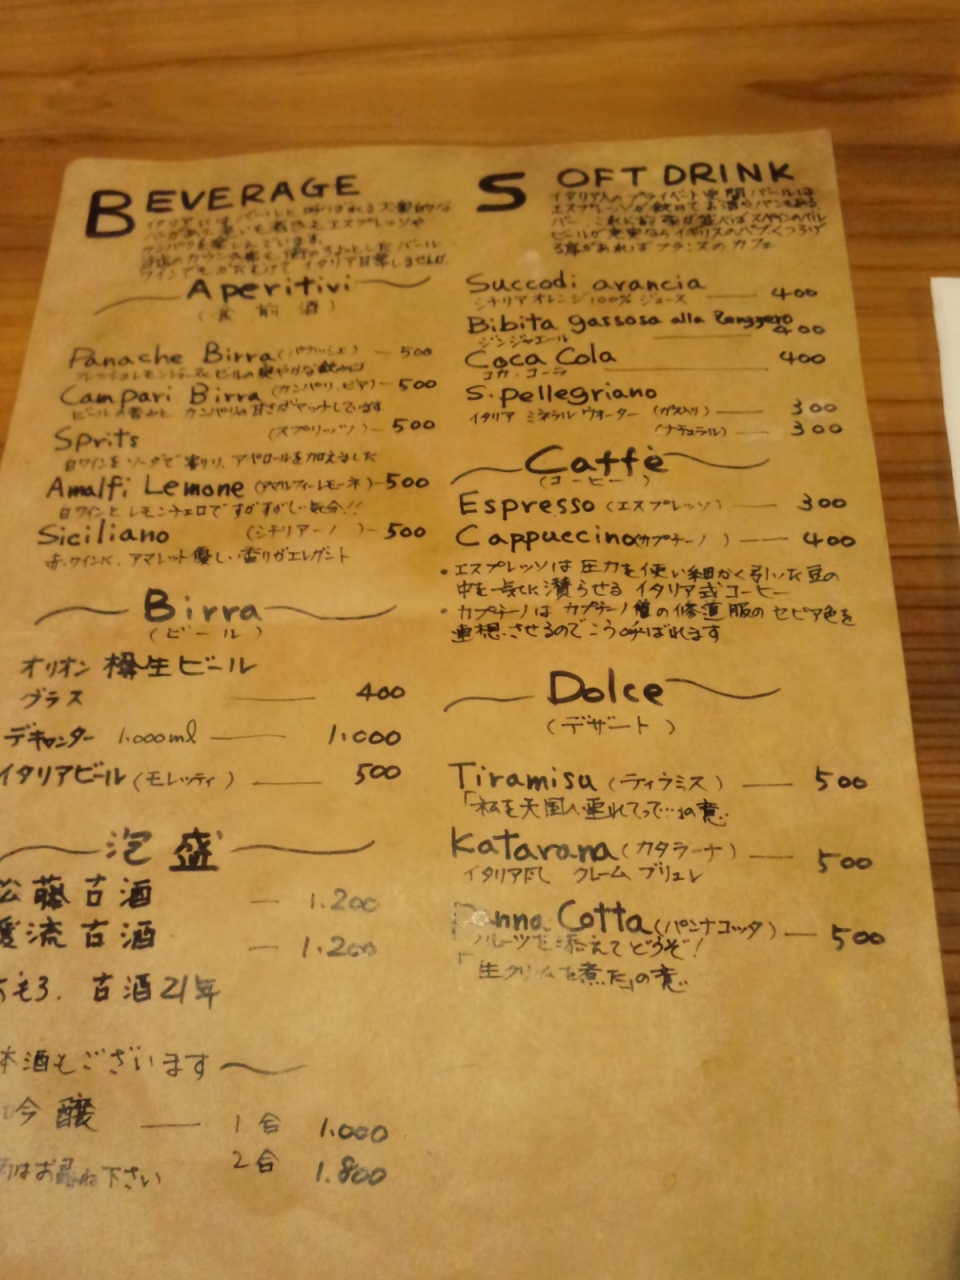 BEVERAGE
Aperitivi
(食前酒)
Panache Birra (パナッシェ) — 500
Campari Birra (カンパリ.ビア) — 500
ビールの苦みと カンパリの甘さがマッチしています
Sprits (スプリッツ) — 500
白ワインをソーダで割り、アペロールを加えました
Amalfi Lemone (アマルフィ・レモーネ) — 500
白ワインとレモンチェロですがすがしい気分!!
Siciliano (シチリアーノ) — 500
赤ワインと、アマレット優しい香りがエレガント
Birra
(ビール)
オリオン 樽生ビール
グラス — 400
デキャンター 1.000ml — 1.000
イタリアビール (モレッティ) — 500
泡盛
藤古酒 — 1.200
流古酒 — 1.200
古酒21年
酒もございます
吟醸 — 1合 1.000
2合 1.800
はお尋ね下さい
SOFT DRINK
イタリア人のプライベート空間 バールは
エスプレッソが飲めてお酒やパンもある
Succodi arancia
シチリアオレンジ100% ジュース — 400
Bibita gassosa alla
ジンジャエール — 400
Coca Cola — 400
コカ・コーラ
S.pellegriano
イタリア ミネラル ウォーター (ガス入り) — 300
(ナチュラル) — 300
Caffè
(コーヒー)
Espresso (エスプレッソ) — 300
Cappuccino (カプチーノ) — 400
・エスプレッソは 圧力を使い細かく引いた豆の
中を一気に濽らせる イタリア式コーヒー
・カプチーノは カプチーノ僧の修道服の セピア色を
連想させるのでこう呼ばれます
Dolce
(デザート)
Tiramisu (ティラミス) — 500
「私を天国へ連れてって…」の意
Katarana (カタラーナ) — 500
イタリア風 クレーム ブリュレ
Panna Cotta (パンナコッタ) — 500
フルーツを添えてどうぞ!
「生クリームを煮た」の意